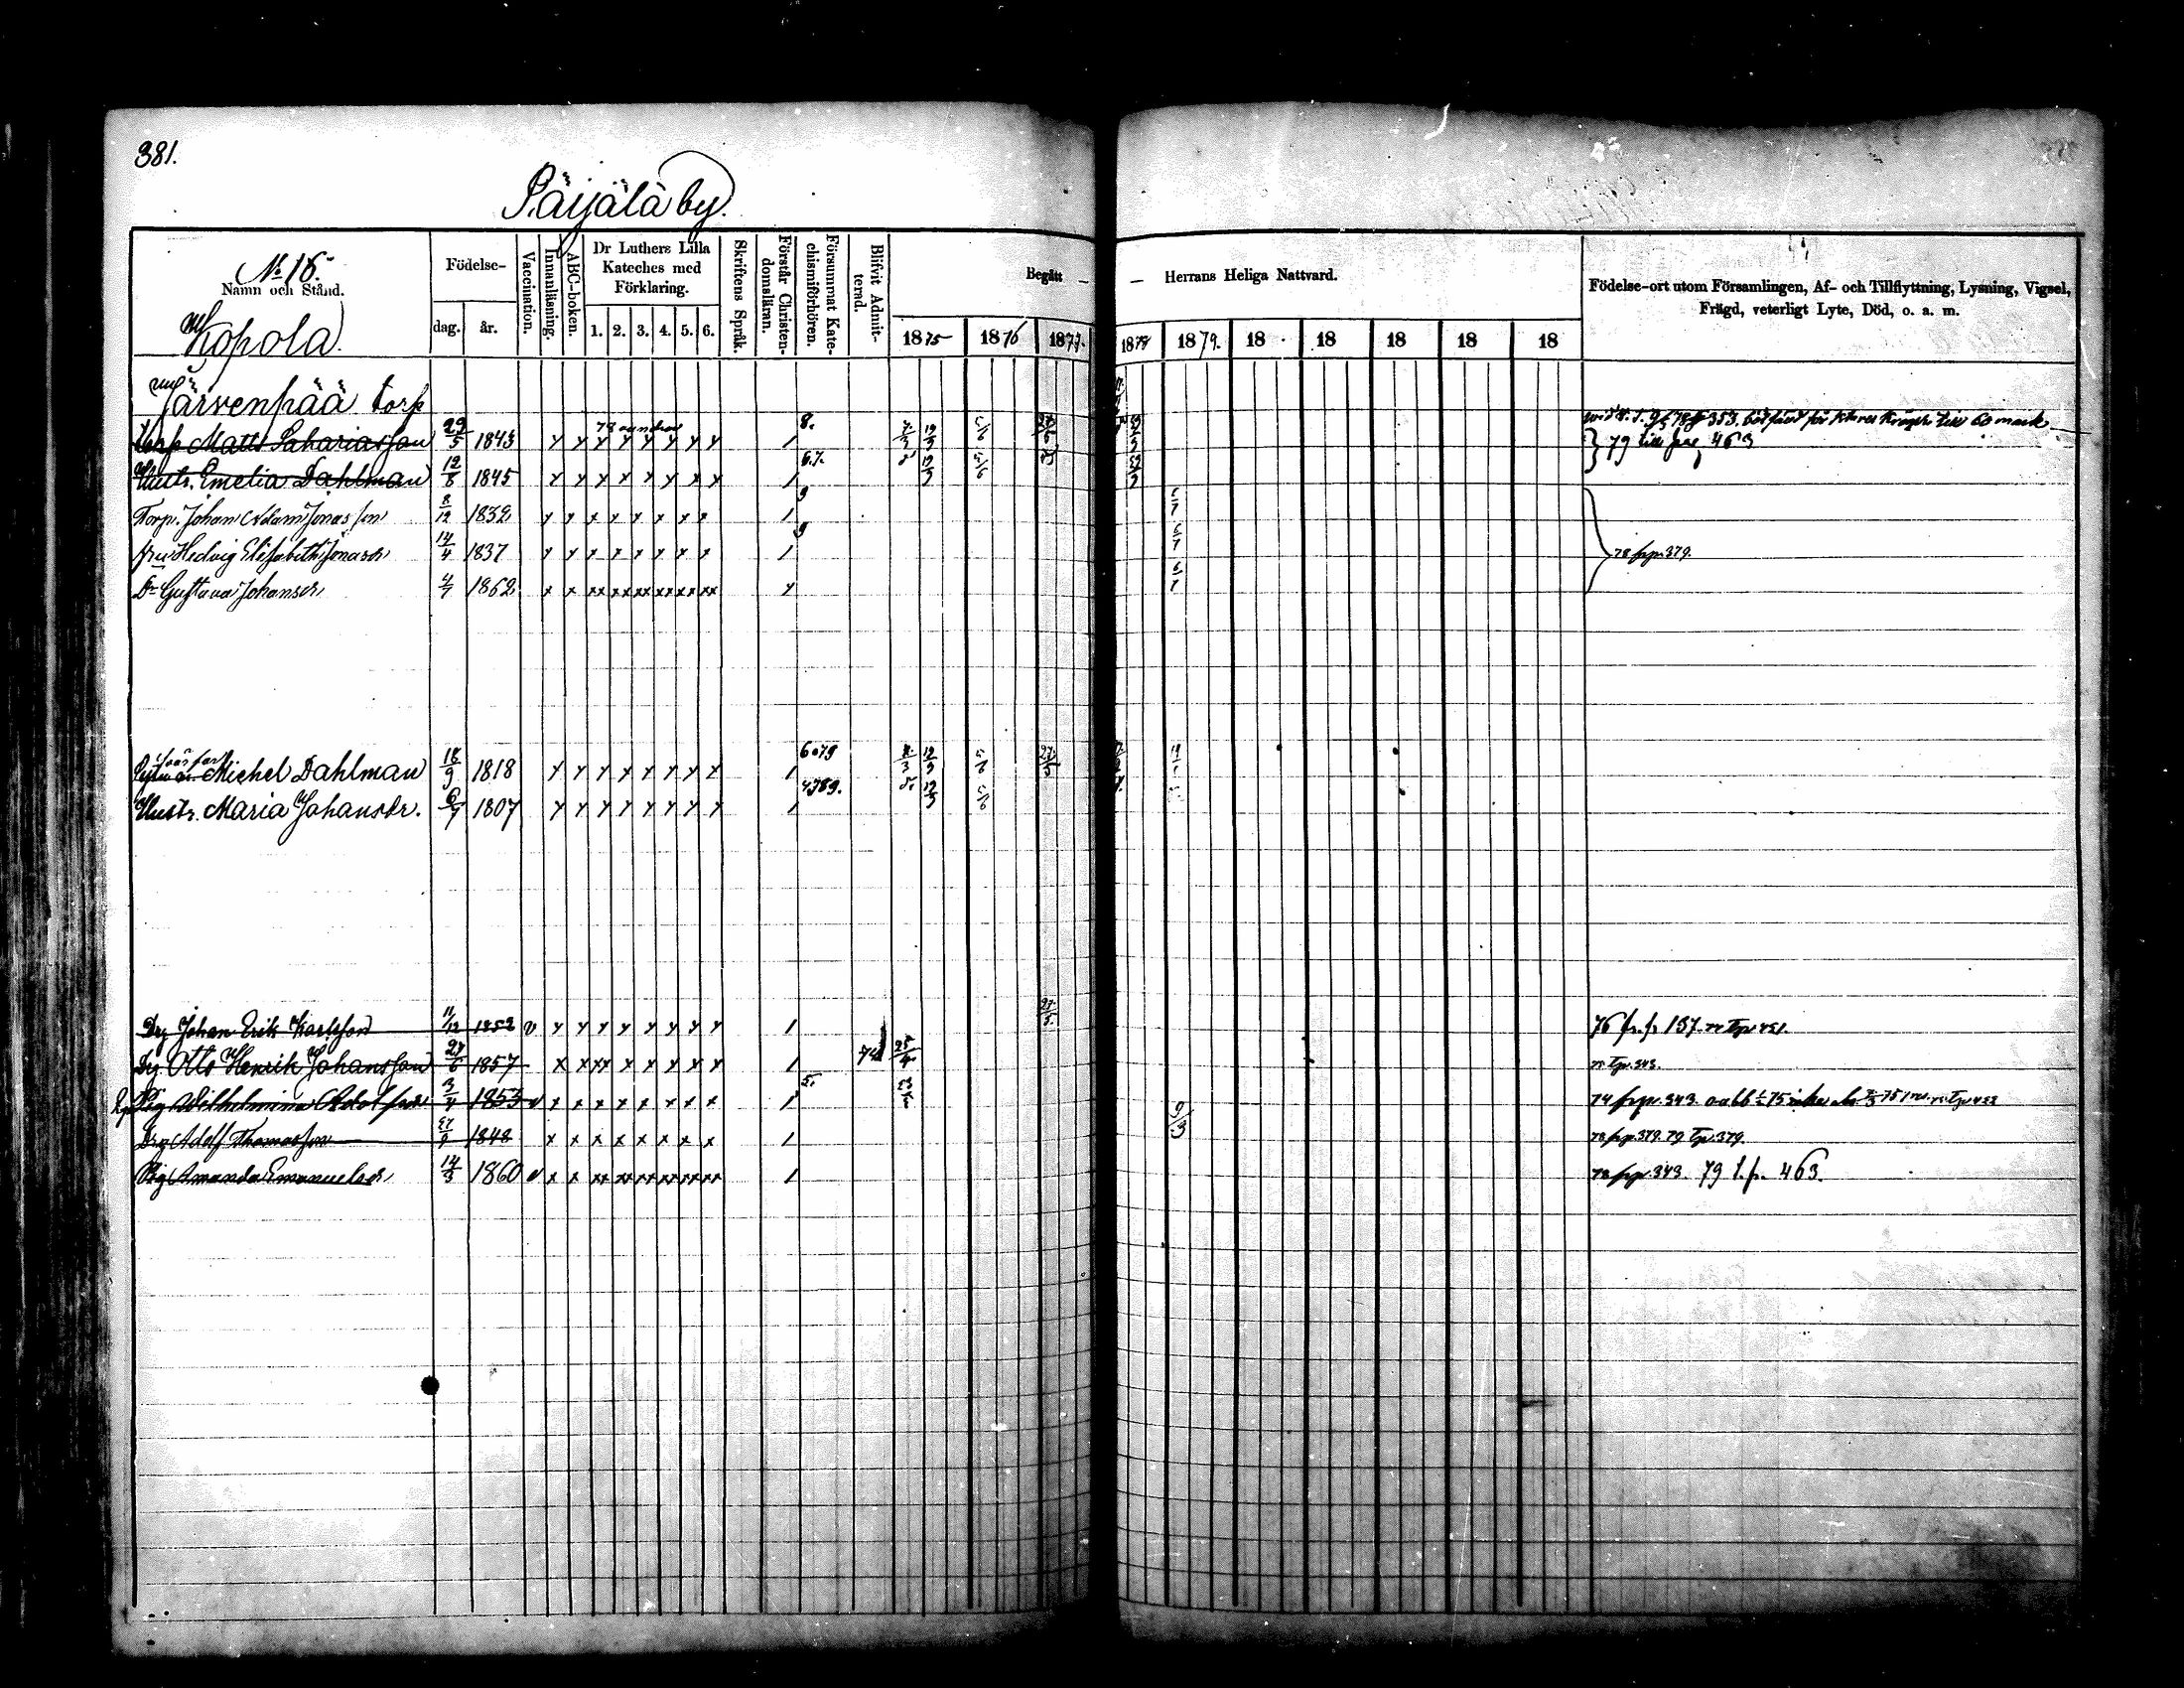 381.
Päijälä by.
No 16.
Namn och Stånd.
Kopola.
Födelse-
dag. år.
Vaccination.
Innanläsning.
ABC-boken.
Dr Luthers Lilla Kateches med Förklaring.
1. 2. 3. 4. 5. 6.
Skriftens Språk.
Förstår Christendomsläran.
Försummat Katechismiförhören.
Blifvit Admitterad.
Begått — — Herrans Heliga Nattvard.
1875 1876 1877. 1878 1879. 18 18 18 18 18
Födelse-ort utom Församlingen, Af- och Tillflyttning, Lysning, Vigsel,
Frägd, veterligt Lyte, Död, o. a. m.
Järvenpää torp
Torp Matts Sahariasson 29/5 1843 8. 353. 60 mark
Hustr. Emelia Dahlman 12/8 1845 6.7. 79 till pag 463
Torp. Johan Adam Jonasson 8/12 1832 9
Hedvig Elisabeth Jonasdr 14/4 1837 9 78 frp. 379.
Dr Gustava Johansdr 4/7 1862
Michel Dahlman 18/9 1818 6079
Hustr. Maria Johansdr. 6/7 1807 4789.
Drg Johan Erik Karlsson 11/12 1852 v 27/5. 76 fr. p 137.
Drg Otto Henrik Johansson 27/6 1857 74 25/4 343.
Pig Wilhelmina Adolfsdr 3/4 1853 v 5. 74 frp. 343.
Drg Adolf Thomasson 27/9 1848 9/3 78 frp. 379. 79 tp. 379.
Pig Amanda Emanuelsdr 14/3 1860 v 78 frp. 343. 79 t. p. 463.